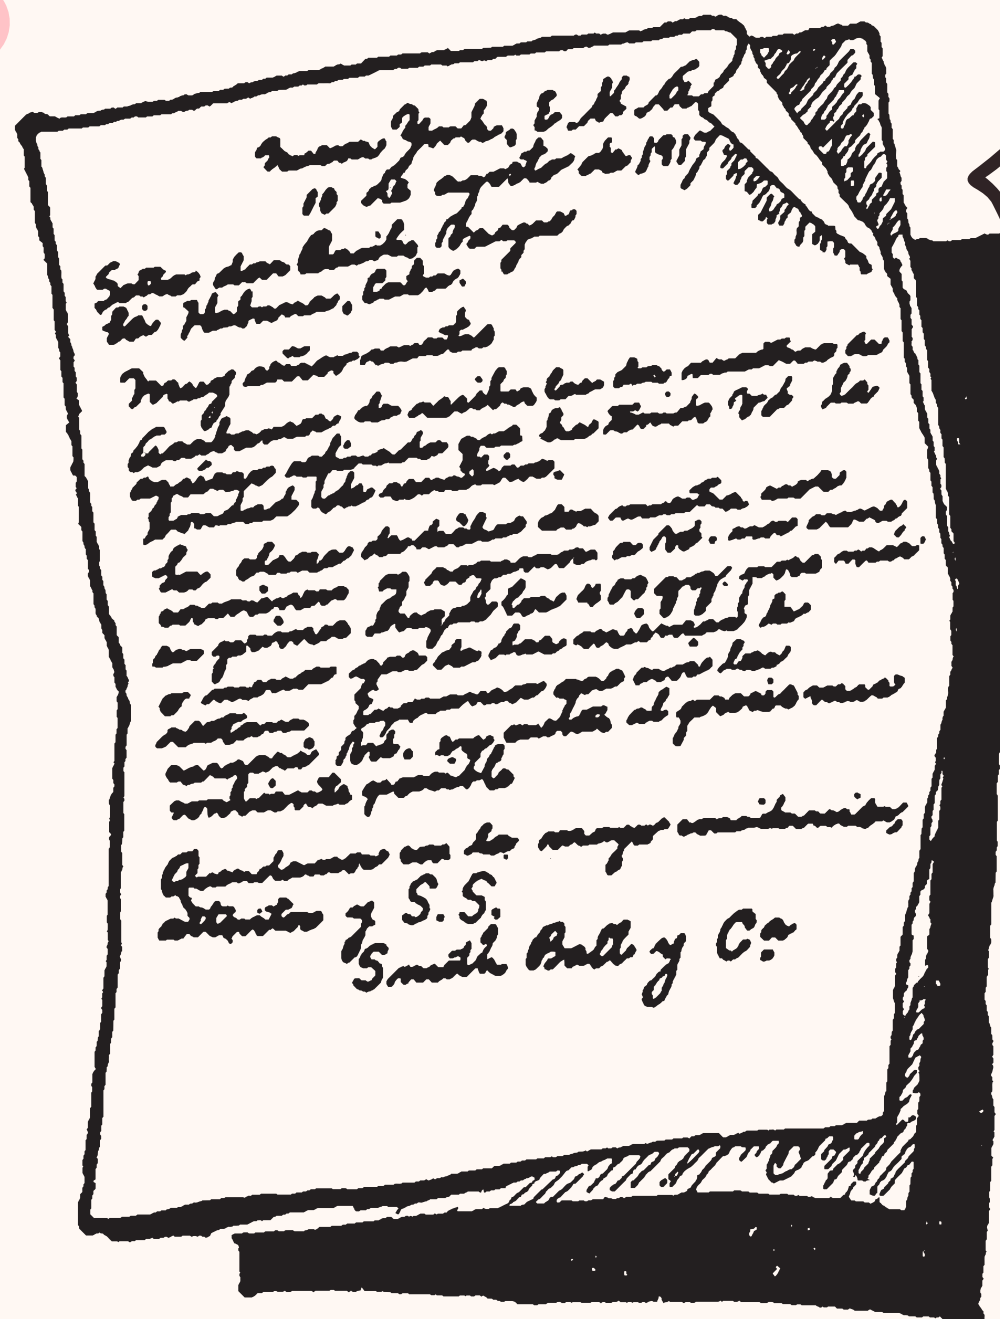 Nueva York, E. U. A.
10 de agosto de 1917
Señor don Vargas
La Habana, Cuba.
Muy señor nuestro
Acabamos de recibir las dos muestras de
azúcar refinado que ha tenido Vd la
bondad de remitirnos.
La clase de dichas dos muestras nos
conviene y rogamos a Vd. nos
su primer los
o menos que de las mismas le
restan. Esperamos que nos las
cargará Vd. en cuenta al precio mas
conveniente posible
Quedamos con la mayor consideración,
atentos y S. S.
Smith Ball y Cª